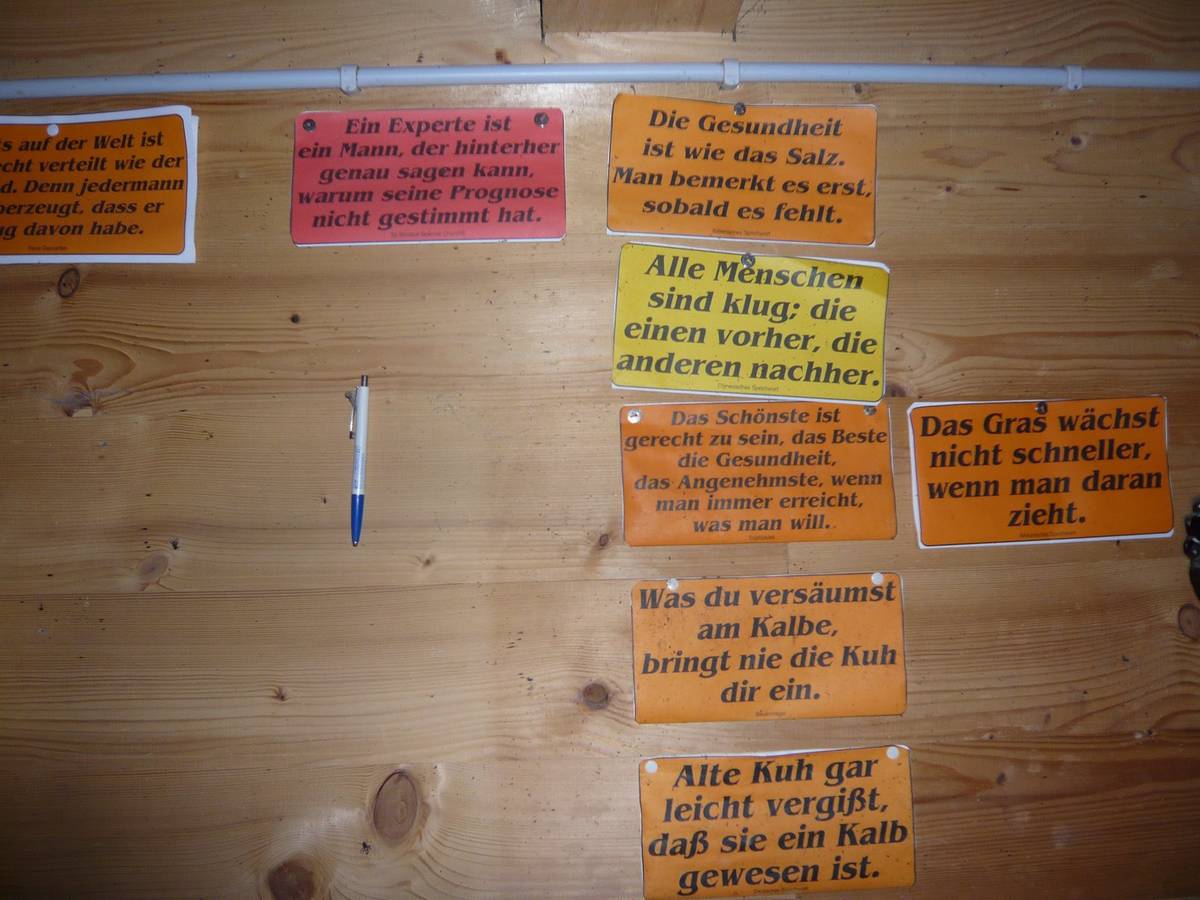 s auf der Welt ist
echt verteilt wie der
d. Denn jedermann
berzeugt, dass er
ug davon habe.
René Descartes
Ein Experte ist
ein Mann, der hinterher
genau sagen kann,
warum seine Prognose
nicht gestimmt hat.
Die Gesundheit
ist wie das Salz.
Man bemerkt es erst,
sobald es fehlt.
Alle Menschen
sind klug; die
einen vorher, die
anderen nachher.
Chinesisches Sprichwort
Das Schönste ist
gerecht zu sein, das Beste
die Gesundheit,
das Angenehmste, wenn
man immer erreicht,
was man will.
Das Gras wächst
nicht schneller,
wenn man daran
zieht.
Was du versäumst
am Kalbe,
bringt nie die Kuh
dir ein.
Alte Kuh gar
leicht vergißt,
daß sie ein Kalb
gewesen ist.